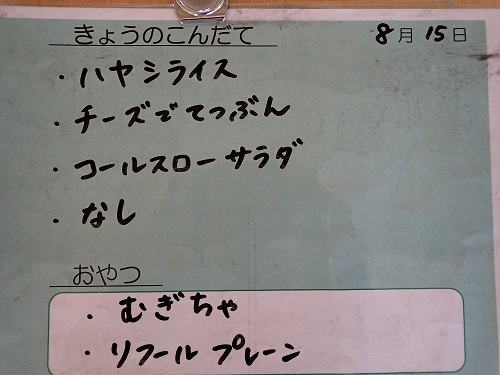 きょうのこんだて 8月15日
・ハヤシライス
・チーズでてつぶん
・コールスローサラダ
・なし
おやつ
・むぎちゃ
・リフール プレーン